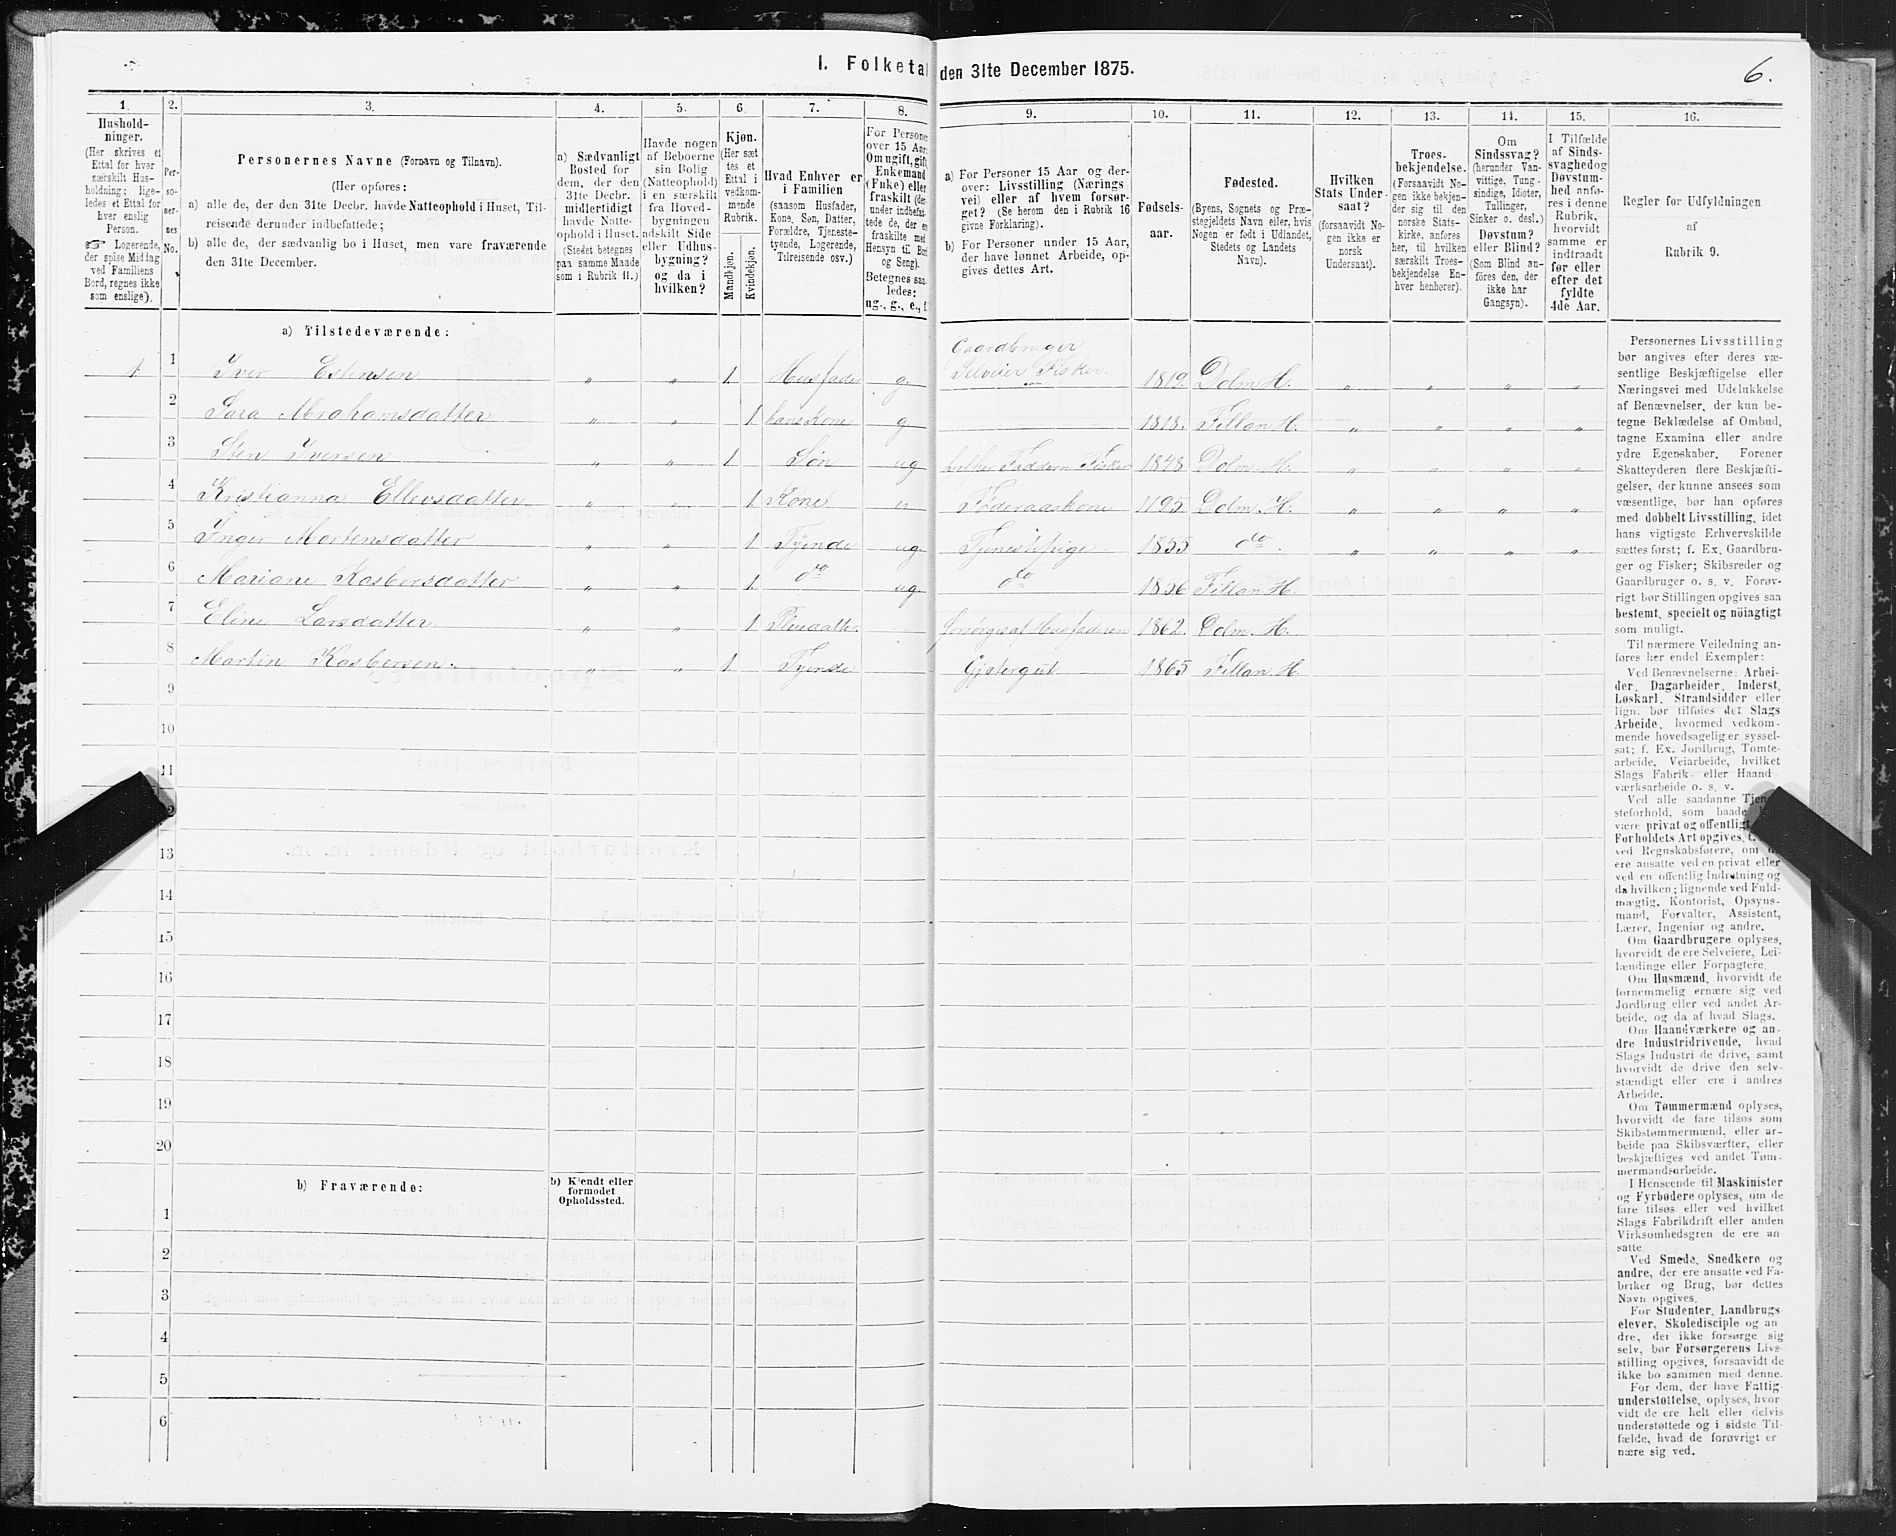 I. Folketal den 31te December 1875.
6.
1.
Hushold-
ninger.
(Her skrives et
Ettal for hver
særskilt Hus-
holdning; lige-
ledes et Ettal for
hver enslig
Person.
Logerende,
der spise Middag
ved Familiens
Bord, regnes ikke
som enslige).
2.
Per-
so-
ner-
nes
No.
3.
Personernes Navne (Fornavn og Tilnavn).
(Her opføres:
a) alle de, der den 31te Decbr. havde Natteophold i Huset, Til-
reisende derunder indbefattede;
b) alle de, der sædvanlig bo i Huset, men vare fraværende
den 31te December.
4.
a) Sædvanligt
Bosted for
dem, der den
31te Decbr.
midlertidigt
havde Natte-
ophold i Huset.
(Stedet betegnes
paa samme Maade
som i Rubrik 11.)
5.
Havde nogen
af Beboerne
sin Bolig
(Natteophold)
i en særskilt
fra Hoved-
bygningen
adskilt Side
eller Udhus-
bygning?
og da i
hvilken?
6.
Kjøn.
(Her sæt-
tes et
Ettal i
vedkom-
mende
Rubrik.
Mandkjøn.
Kvindekjøn.
7.
Hvad Enhver er
i Familien
(saasom Husfader,
Kone, Søn, Datter,
Forældre, Tjeneste-
tyende, Logerende,
Tilreisende osv.)
8.
For Personer
over 15 Aar:
Om ugift, gift,
Enkemand
(Enke) eller
fraskilt (der-
under indbefat-
tede de, der ere
fraskilte med
Hensyn til Bord
og Seng).
Betegnes saa-
ledes:
ug., g., e., f.
9.
a) For Personer 15 Aar og der-
over: Livsstilling (Nærings-
vei) eller af hvem forsør-
get? (Se herom den i Rubrik 16
givne Forklaring).
b) For Personer under 15 Aar,
der have lønnet Arbeide, op-
gives dettes Art.
10.
Fødsels-
aar.
11.
Fødested.
(Byens, Sognets og Præ-
stegjeldets Navn eller, hvis
Nogen er født i Udlandet,
Stedets og Landets
Navn).
12.
Hvilken
Stats Under-
saat?
(forsaavidt No-
gen ikke er
norsk
Undersaat).
13.
Troes-
bekjendelse.
(Forsaavidt No-
gen ikke bekjen-
der sig til den
norske Stats-
kirke, anføres
her, til hvilken
særskilt Troes-
bekjendelse En-
hver henhører).
14.
Om
Sindssvag?
(herunder Van-
vittige, Tung-
sindige, Idioter,
Tullinger,
Sinker o. desl.)
Døvstum?
eller Blind?
(Som Blind an-
føres den, der
ikke har
Gangsyn).
15.
I Tilfælde
af Sinds-
svaghed og
Døvstum-
hed anfø-
res i denne
Rubrik,
hvorvidt
samme er
indtraadt
før eller
efter det
fyldte
4de Aar.
16.
Regler for Udfyldningen
af
Rubrik 9.
a) Tilstedeværende:
1 1 Iver Estensen „ „ 1. Husfader g. Gaardbruger Selveier Fisker. 1819. Dolm H. „ „ „ „
2 Sara Abrahamsdatter „ „ 1 hans Kone g 1818. Fillan H. „ „ „ „
3 Sten Iversen „ „ 1. Søn ug hjelper Faderen Fisker 1848 Dolm H. „ „ „ „
4 Kristianna Ellevsdatter „ „ 1. Kone e. Føderaadskone 1795. Dolm H. „ „ „ „
5 Inger Mortensdatter „ „ 1. Tyende ug. Tjenestepige 1855 do. „ „ „ „
6 Mariane Kasbersdatter „ „ 1. do ug. do 1856 Fillan H.
7 Eline Larsdatter „ „ 1 Pleiedatter. forsørges af Husfaderen 1862. Dolm H.
8 Martin Kasbersen. „ „ 1. Tyende Gjetergut 1865 Fillan H.
9
10
11
13
14
15
16
17
18
19
20
b) Fraværende:
b) Kjendt eller
formodet
Opholdssted.
1
2
3
4
5
6
Personernes Livsstilling
bør angives efter deres væ-
sentlige Beskjæftigelse eller
Næringsvei med Udelukkelse
af Benævnelser, der kun be-
tegne Beklædelse af Ombud,
tagne Examina eller andre
ydre Egenskaber. Forener
Skatteyderen flere Beskjæfti-
gelser, der kunne ansees som
væsentlige, bør han opføres
med dobbelt Livsstilling, idet
hans vigtigste Erhvervskilde
sættes først; f. Ex. Gaardbru-
ger og Fisker; Skibsreder og
Gaardbruger o. s. v. Forøv-
rigt bør Stillingen opgives saa
bestemt, specielt og nöiagtigt
som muligt.
Til nærmere Veiledning an-
føres her endel Exempler:
Ved Benævnelserne: Arbei-
der, Dagarbeider, Inderst,
Løskarl, Strandsidder eller
lign. bør tilføies det Slags
Arbeide, hvormed vedkom-
mende hovedsagelig er syssel-
sat; f. Ex. Jordbrug, Tomte-
arbeide, Veiarbeide, hvilket
Slags Fabrik- eller Haand-
værksarbeide o. s. v.
Ved alle saadanne Tjene-
steforhold, som baade kunne
være privat og offentligt
Forholdets Art opgives,
ved Regnskabsførere, om de
ere ansatte ved en privat eller
ved en offentlig Indretning og
da hvilken; lignende ved Fuld-
mægtig, Kontorist, Opsyns-
mand, Forvalter, Assistent,
Lærer, Ingeniør og andre.
Om Gaardbrugere oplyses,
hvorvidt de ere Selveiere, Lei-
lændinge eller Forpagtere.
Om Husmænd, hvorvidt de
fornemmelig ernære sig ved
Jordbrug eller ved andet Ar-
beide, og da af hvad Slags.
Om Haandværkere og an-
dre Industridrivende, hvad
Slags Industri de drive, samt
hvorvidt de drive den selv-
stændigt eller ere i andres
Arbeide.
Om Tømmermænd oplyses,
hvorvidt de fare tilsøs som
Skibstømmermænd, eller ar-
beide paa Skibsværfter, eller
beskjæftiges ved andet Tøm-
mermandsarbeide.
I Henseende til Maskinister
og Fyrbødere oplyses, om de
fare tilsøs eller ved hvilket
Slags Fabrikdrift eller anden
Virksomhedsgren de ere an-
satte.
Ved Smede, Snedkere og
andre, der ere ansatte ved Fa-
briker og Brug, bør dettes
Navn opgives.
For Studenter, Landbrugs-
elever, Skoledisciple og an-
dre, der ikke forsørge sig
selv, bør Forsørgerens Livs-
stilling opgives, forsaavidt de
ikke bo sammen med denne.
For dem, der have Fattig-
understøttelse, oplyses, hvor-
vidt de ere helt eller delvis
understøttede og i sidste Til-
fælde, hvad de forøvrigt er-
nære sig ved.